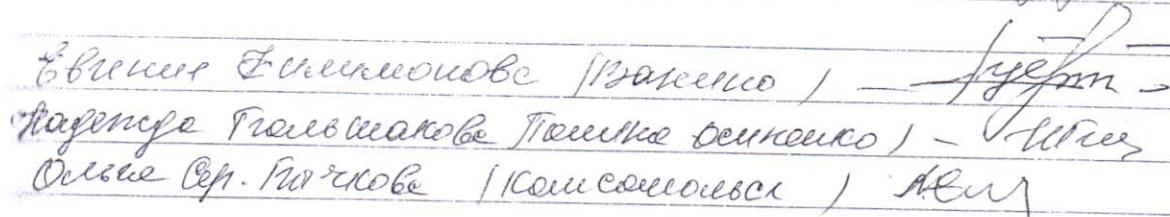 Евгение Филимонова (Ванино) —
Надежда Тальшакова (Полина Осипенко) —
Ольга Сер. Пачкова (Комсомольск)